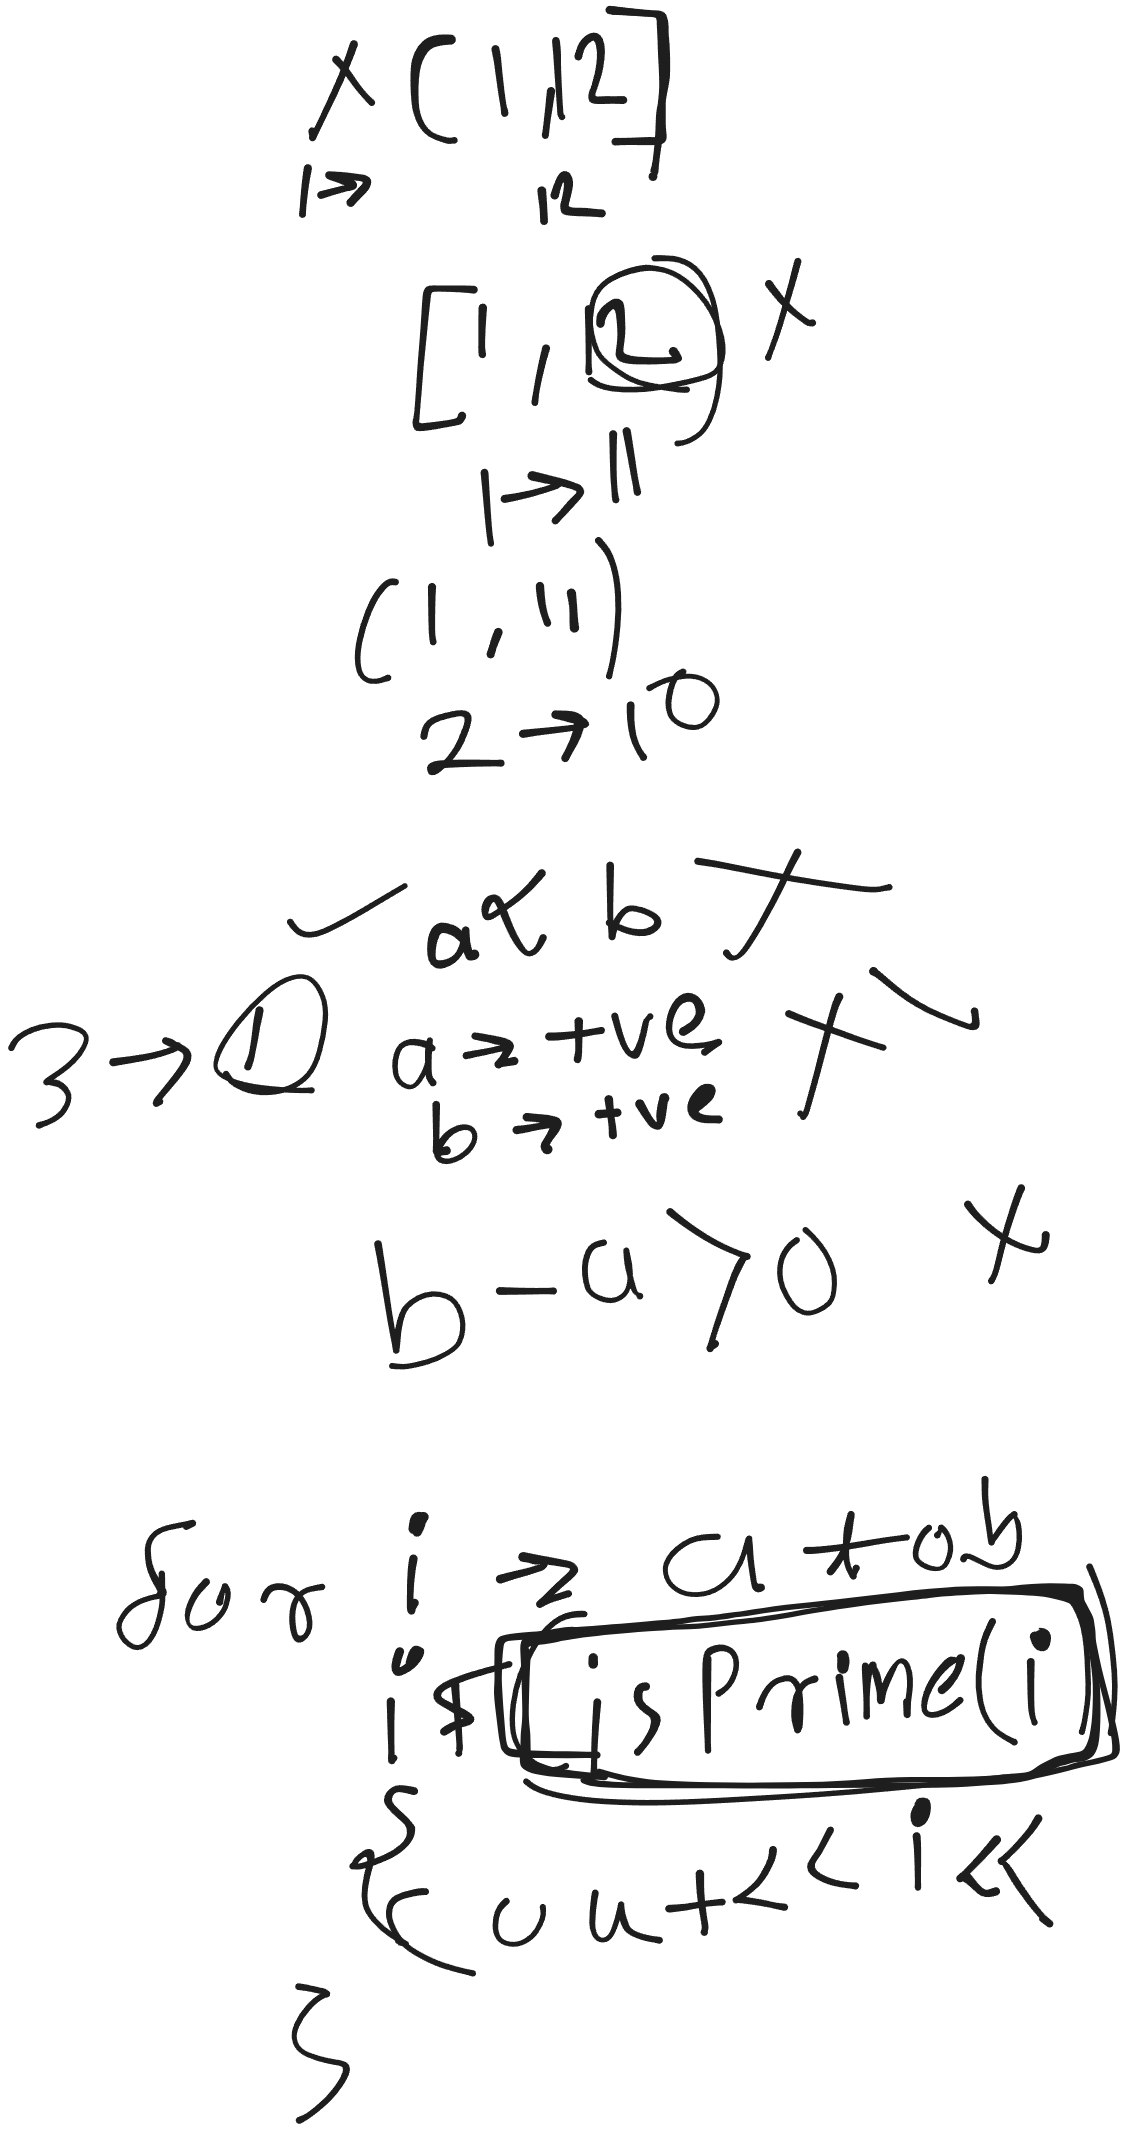 x (1,12]
1→ 12
[1, 12) x
1→11
(1, 11)
2→10
a < b
3→1 a→+ve
b→+ve
b-a>0 x
for i → a to b
if isprime(i
{
cout<<i<<
}